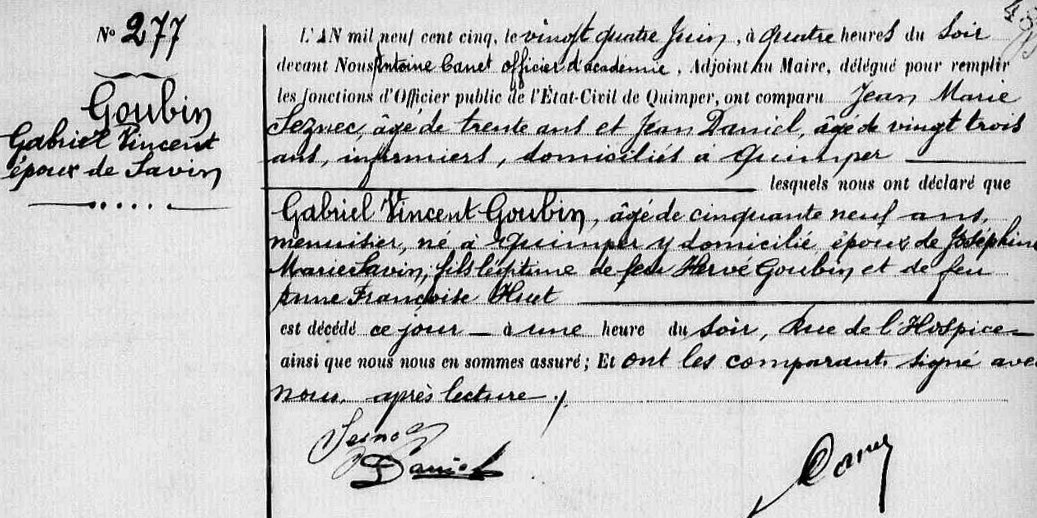 N° 277
Goubin
Gabriel Vincent
époux de Savin
L'AN mil neuf cent cinq, le vingt quatre Juin, à quatre heures du Soir
devant Nous Antoine Canet officier d'academie, Adjoint au Maire, délégué pour remplir
les fonctions d'Officier public de l'État-Civil de Quimper, ont comparu Jean Marie
Seznec, âgé de trente ans et Jean Daniel, âgé de vingt trois
ans, infirmiers, domiciliés à Quimper
lesquels nous ont déclaré que
Gabriel Vincent Goubin, âgé de cinquante neuf ans,
menuisier, né à Quimper y domicilié époux de Joséphine
Marie Savin, fils légitime de feu Hervé Goubin et de feu
Anne Françoise Huet
est décédé ce jour à une heure du Soir, Rue de l'Hospice
ainsi que nous nous en sommes assuré ; Et ont les comparants signé avec
nous après lecture ./.
Seznec
Daniel
Canet